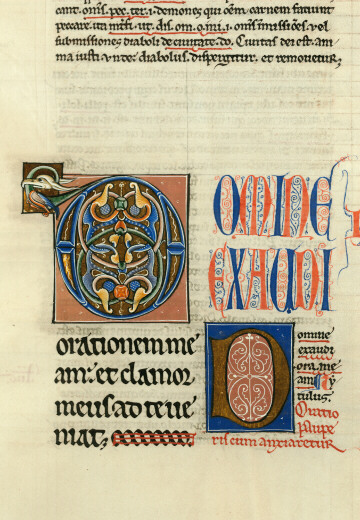 cant. om̅s. pec. ter. i. demones qui om̅em carnem faciunt
peccare.
submissiones diaboli de ciuitate. do. Ciuitas dei est. ani
ma iusti unde diabolus dispergitur. et remouetur;
DOMINE
EXAUDI
orationem me
am: et clamor
meus ad te ue
niat;
Domine
exaudi
ora. me
am
tulus.
Oratio
paupe
ris cum anxiaretur